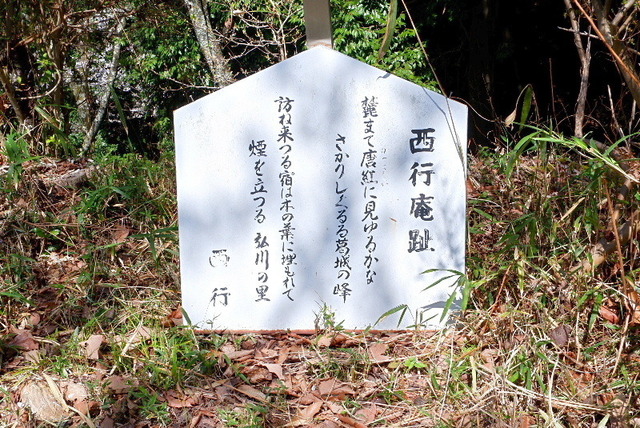 西行庵趾
麓まで唐紅に見ゆるかな
さかりしぐるる葛城の峰
訪ね来つる宿は木の葉に埋もれて
煙を立つる弘川の里
西行